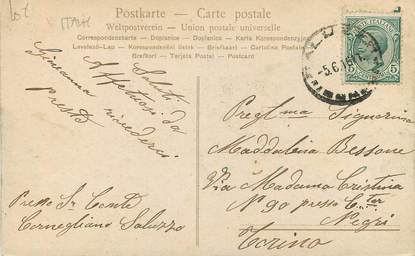 Lot
ITALIE
Postkarte — Carte postale
Weltpostverein — Union postale universelle
Correspondenzkarte — Dopisnice — Karta Korespondencyjna
Levelező-Lap — Korespondenčni listek — Briefkaart — Cartolina Postale
Brefkort — Tarjeta Postal — Postcard
POSTE ITALIANE
5 5
5.6.16
Saluti
Affettuosi da
Giovanna
rivederci
presto
Presso Sr Conte
Cornegliano Saluzzo
Preglma Signorina
Maddalena Bessone
Via Madama Cristina
N 90 presso
Negri
Torino